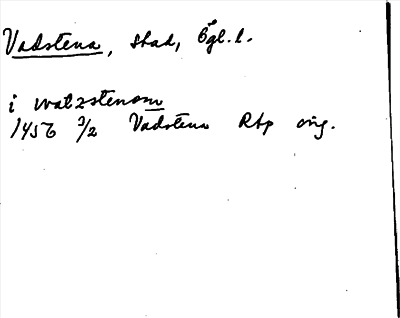 Vadstena, stad, Ögl. l.
i watzstenom
1456 3/2 Vadstena Rbp orig.